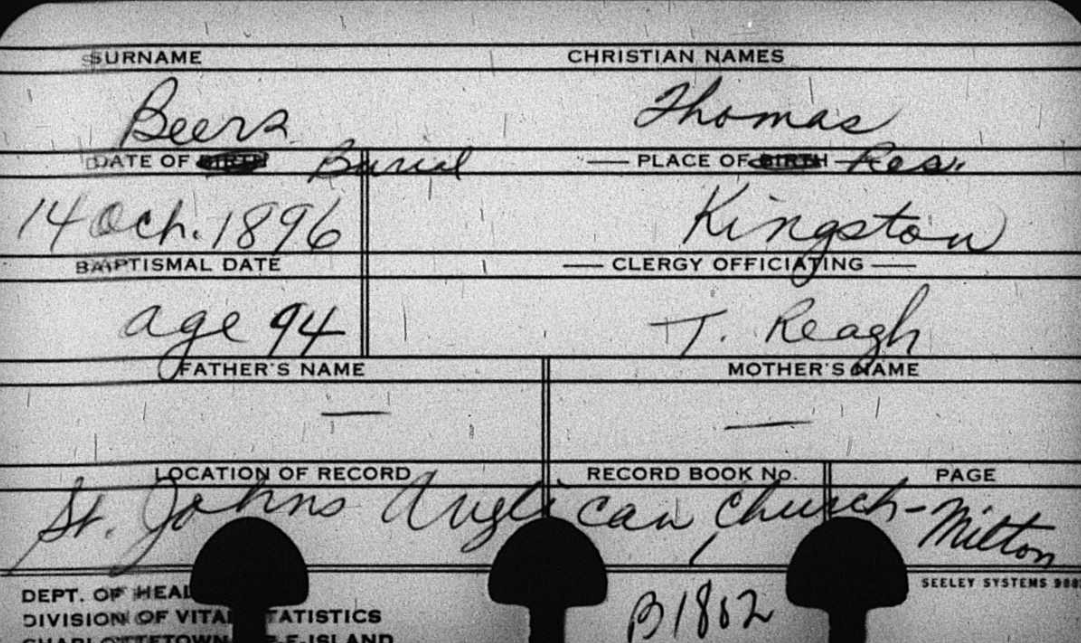 SURNAME CHRISTIAN NAMES
Beers Thomas
DATE OF BIRTH Burial — PLACE OF BIRTH — Res.
14 Oct. 1896 Kingston
BAPTISMAL DATE — CLERGY OFFICIATING —
age 94 T. Reagh
FATHER'S NAME MOTHER'S NAME
— —
LOCATION OF RECORD RECORD BOOK No. PAGE
St. Johns Anglican Church - Milton
SEELEY SYSTEMS
DEPT. OF HEAL
DIVISION OF VITAL STATISTICS
CHARLOTTETOWN P. E. ISLAND
B1802